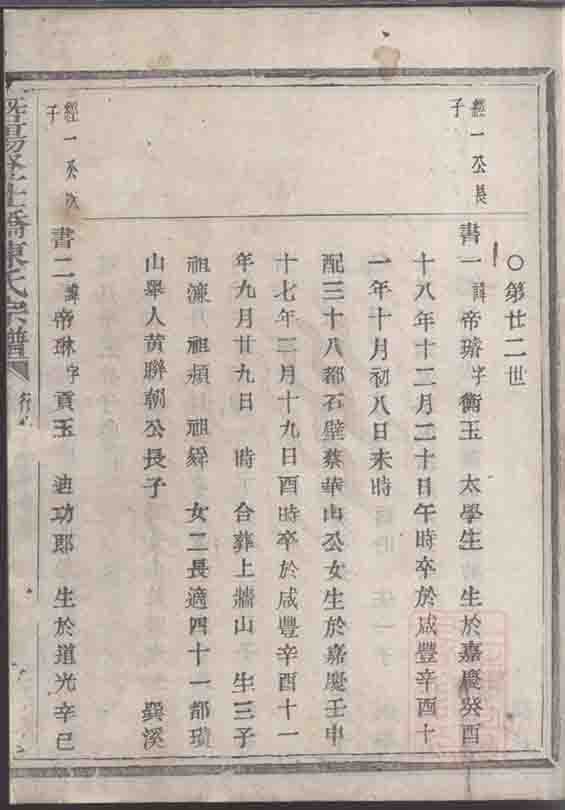 ○第廿二世
經一公長
子
書一諱帝璿字衡玉 太學生 生於嘉慶癸酉
十八年十二月二十日午時卒於咸豐辛酉十
一年十月初八日未時
配三十八都石壁蔡華山公女生於嘉慶壬申
十七年三月十九日酉時卒於咸豐辛酉十一
年九月廿九日 時 合葬上牆山 生三子
祖濂 祖頻 祖舜 女二長適四十一都璜
山舉人黃聯朝公長子 巽溪
經一公次
子
書二諱帝琳字貢玉 迪功郎 生於道光辛巳
陳氏宗譜
行